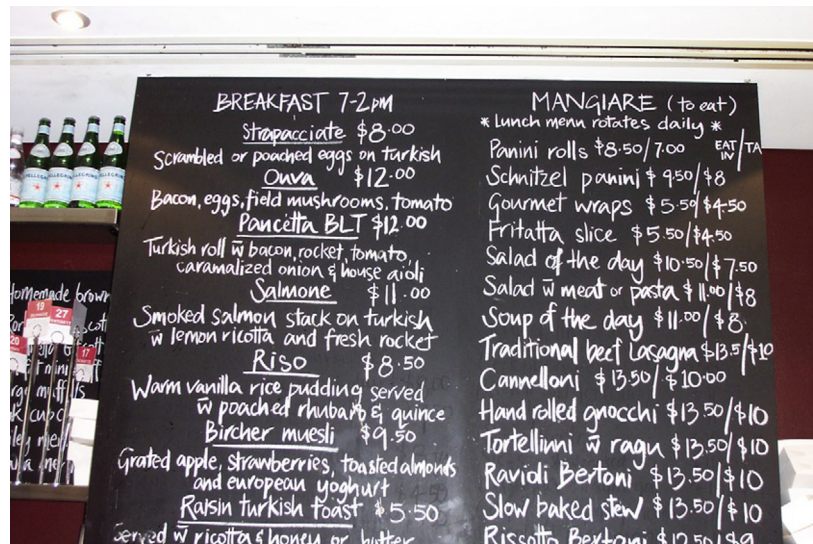 BREAKFAST 7-2pm
Strapacciate $8.00
Scrambled or poached eggs on turkish
Ouva $12.00
Bacon, eggs, field mushrooms, tomato
Pancetta BLT $12.00
Turkish roll w̄ bacon, rocket, tomato,
caramalized onion & house aioli
Salmone $11.00
Smoked salmon stack on turkish
w̄ lemon ricotta and fresh rocket
Riso $8.50
Warm vanilla rice pudding served
w̄ poached rhubarb & quince
Bircher muesli $9.50
Grated apple, strawberries, toasted almonds
and european yoghurt
Raisin turkish toast $5.50
Served w̄ ricotta & honey or butter
MANGIARE (to eat)
* Lunch menu rotates daily *
EAT IN/TA
Panini rolls $8.50/7.00
Schnitzel panini $9.50/$8
Gourmet wraps $5.50/$4.50
Fritatta slice $5.50/$4.50
Salad of the day $10.50/$7.50
Salad w̄ meat or pasta $11.00/$8
Soup of the day $11.00/$8
Traditional beef Lasagna $13.5/$10
Cannelloni $13.50/$10.00
Hand rolled gnocchi $13.50/$10
Tortellinni w̄ ragu $13.50/$10
Ravioli Bertoni $13.50/$10
Slow baked stew $13.50/$10
Rissotto Bertoni $12.50/$9
Homemade brown
19
27
20
17